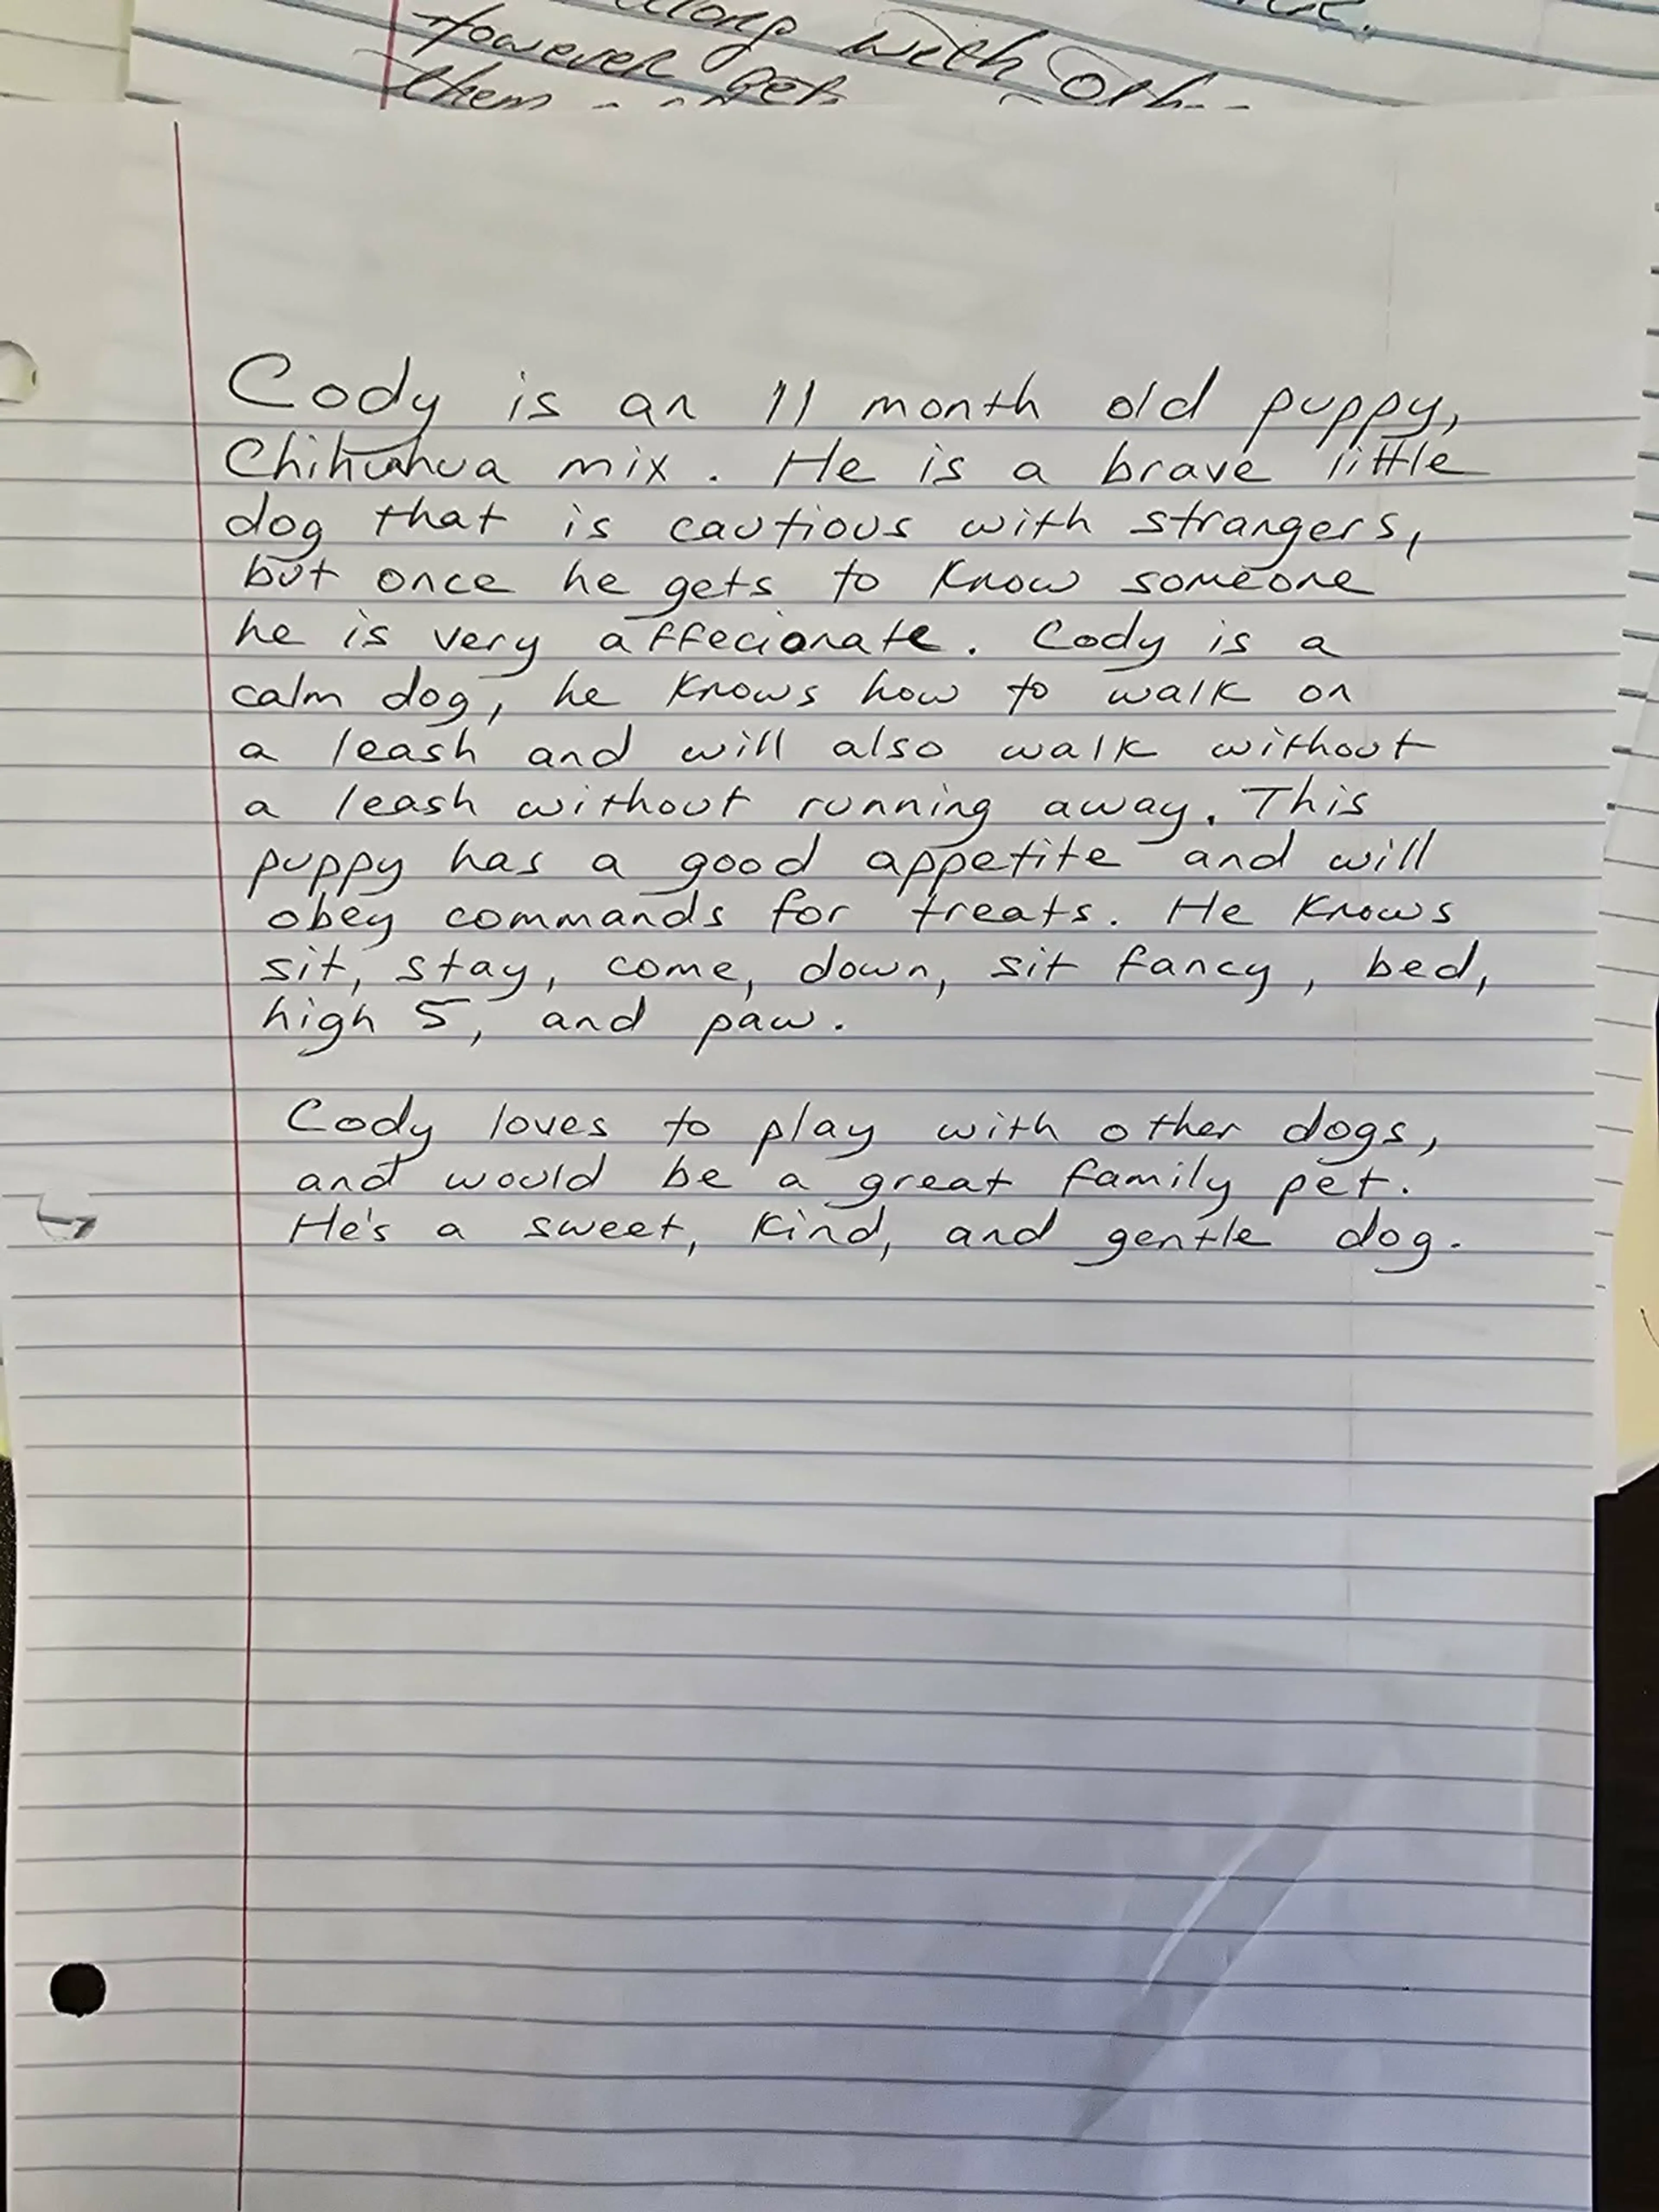 along with
However
them
Cody is an 11 month old puppy,
Chihuahua mix. He is a brave little
dog that is cautious with strangers,
but once he gets to know someone
he is very affecionate. Cody is a
calm dog, he knows how to walk on
a leash and will also walk without
a leash without running away. This
puppy has a good appetite and will
obey commands for treats. He knows
sit, stay, come, down, sit fancy, bed,
high 5, and paw.
Cody loves to play with other dogs,
and would be a great family pet.
He's a sweet, kind, and gentle dog.